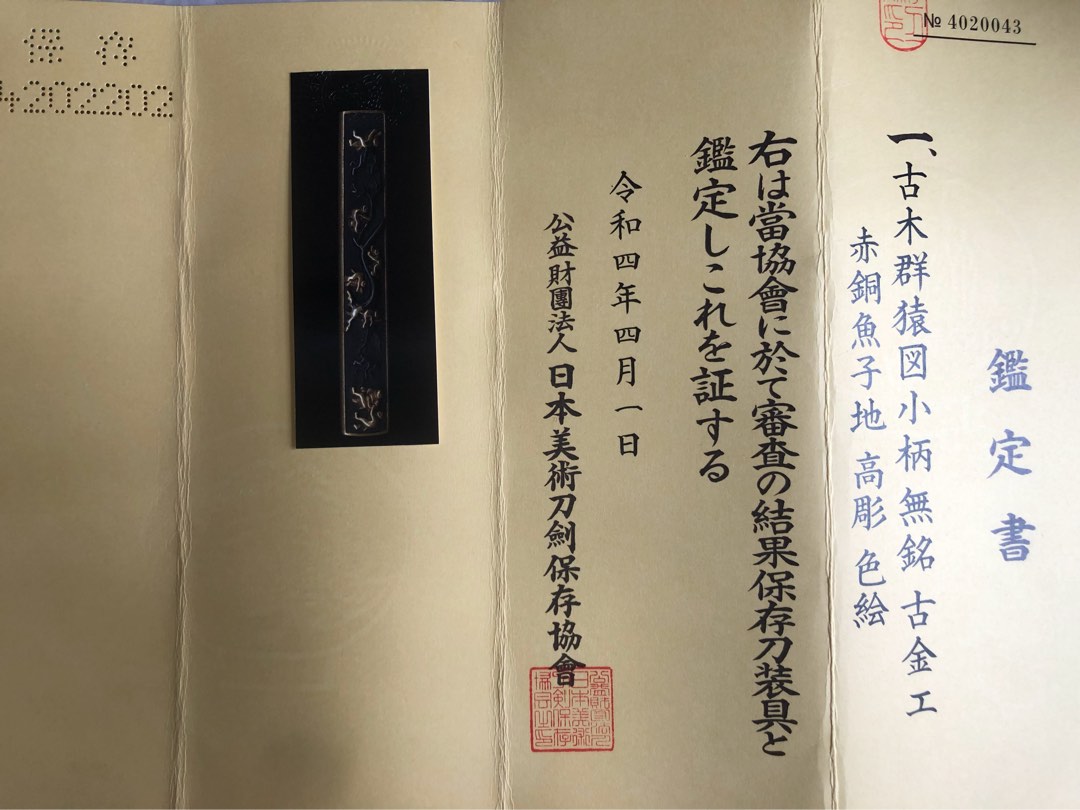 № 4020043
鑑定書
一、古木群猿図小柄 無銘 古金工
赤銅魚子地 高彫 色絵
右は當協會に於て審査の結果保存刀装具と
鑑定しこれを証する
令和四年四月一日
公益財團法人 日本美術刀劍保存協會
保存
4202202